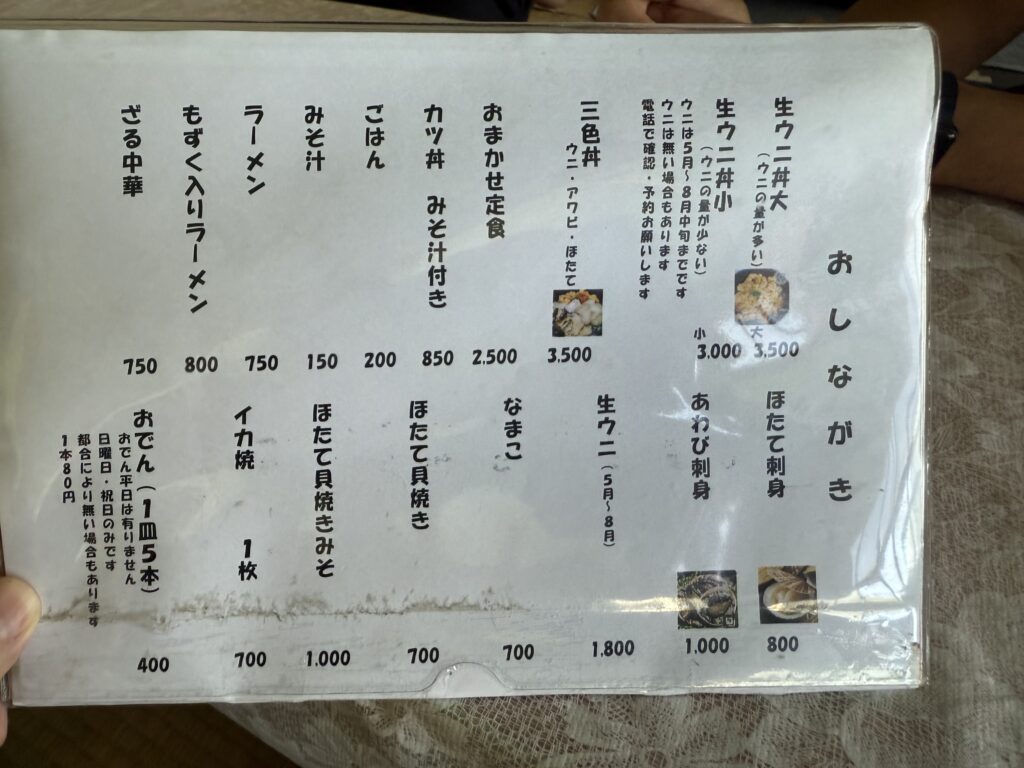 おしながき
生ウニ丼大
（ウニの量が多い）
大
3,500
生ウニ丼小
（ウニの量が少ない）
小
3,000
ウニは5月～8月中旬までです
ウニは無い場合もあります
電話で確認・予約お願いします
三色丼
ウニ・アワビ・ほたて
3,500
おまかせ定食
2,500
カツ丼 みそ汁付き
850
ごはん
200
みそ汁
150
ラーメン
750
もずく入りラーメン
800
ざる中華
750
ほたて刺身
800
あわび刺身
1,000
生ウニ（5月～8月）
1,800
なまこ
700
ほたて貝焼き
700
ほたて貝焼きみそ
1,000
イカ焼 1枚
700
おでん（1皿5本）
400
おでん平日は有りません
日曜日・祝日のみです
都合により無い場合もあります
1本80円